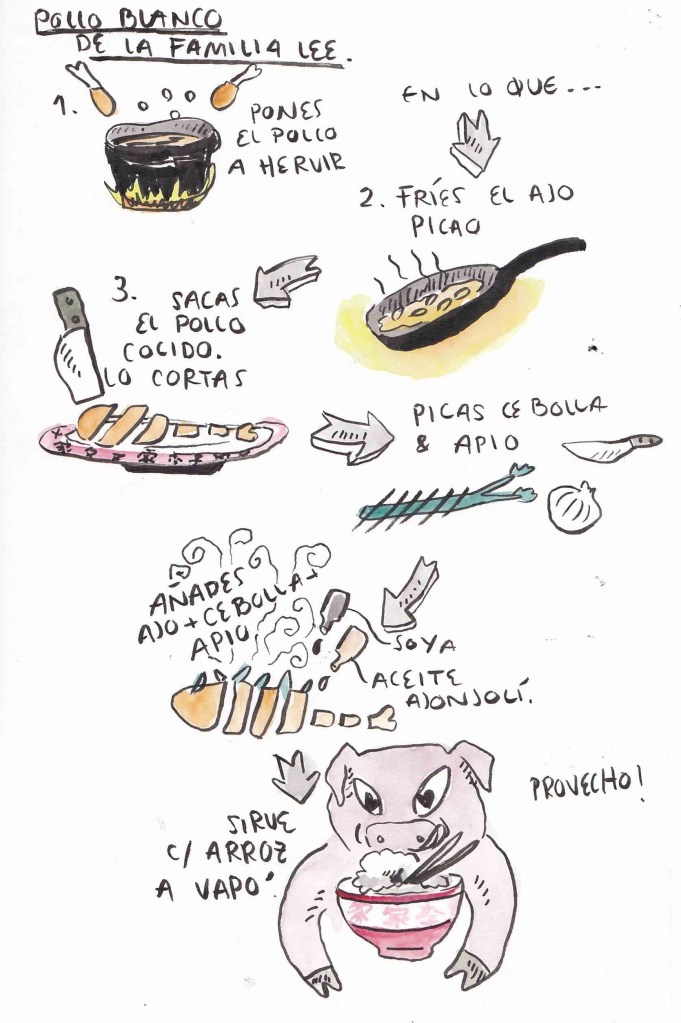 POLLO BLANCO
DE LA FAMILIA LEE.
1. PONES
EL POLLO
A HERVIR
EN LO QUE...
2. FRÍES EL AJO
PICAO
3. SACAS
EL POLLO
COCIDO.
LO CORTAS
PICAS CEBOLLA
& APIO
AÑADES
AJO + CEBOLLA +
APIO
SOYA
ACEITE
AJONJOLÍ.
SIRVE
C/ ARROZ
A VAPO'.
PROVECHO!